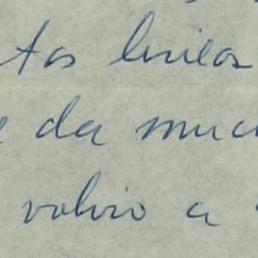 tas lineas
e da muc
volvio a